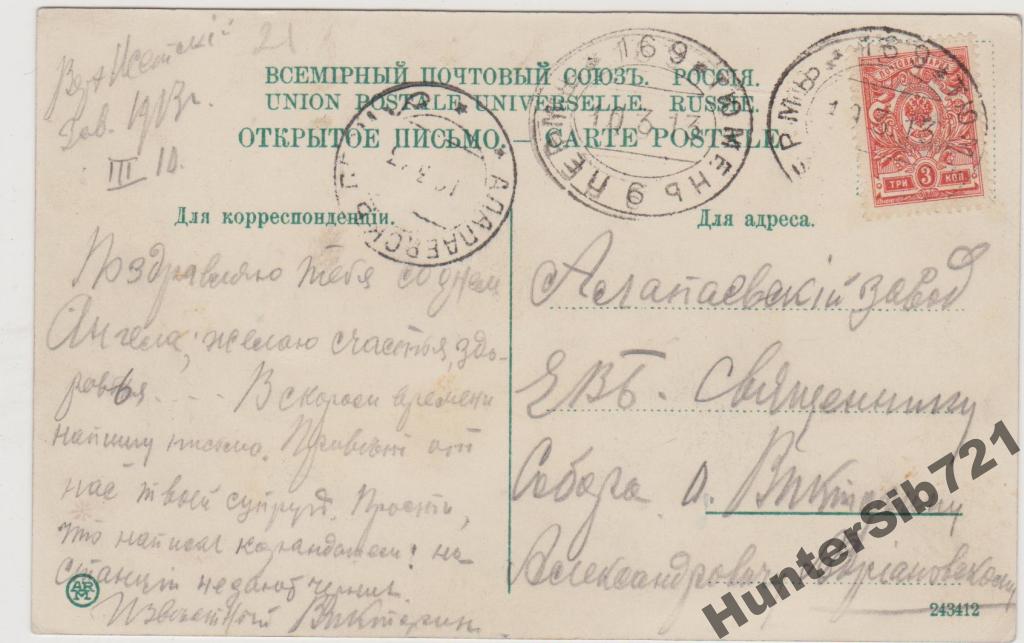 Верх Исетскій
Зав. 1913 г.
III 10.
21
ВСЕМІРНЫЙ ПОЧТОВЫЙ СОЮЗЪ. РОССІЯ.
UNION POSTALE UNIVERSELLE. RUSSIE.
ОТКРЫТОЕ ПИСЬМО. — CARTE POSTALE.
АЛАПАЕВСК
ПЕРМЬ * 169 * ТЮМЕНЬ 9
10.3.13
РМЬ * 169 * ТЮ
ТРИ 3 КОП
Для корреспонденціи.
Поздравляю тебя со днем
Ангела, желаю счастья, здо-
ровья.... В скором времени
напишу письмо. Привет от
нас твоей супруг. Прости,
что написал карандашем: на
станціи не дают чернил.
Викторин
Для адреса.
Алапаевскій завод
ЕВБ. Священнику
Собора о. Викторину
Александровичу
ARM
243412
HunterSib721